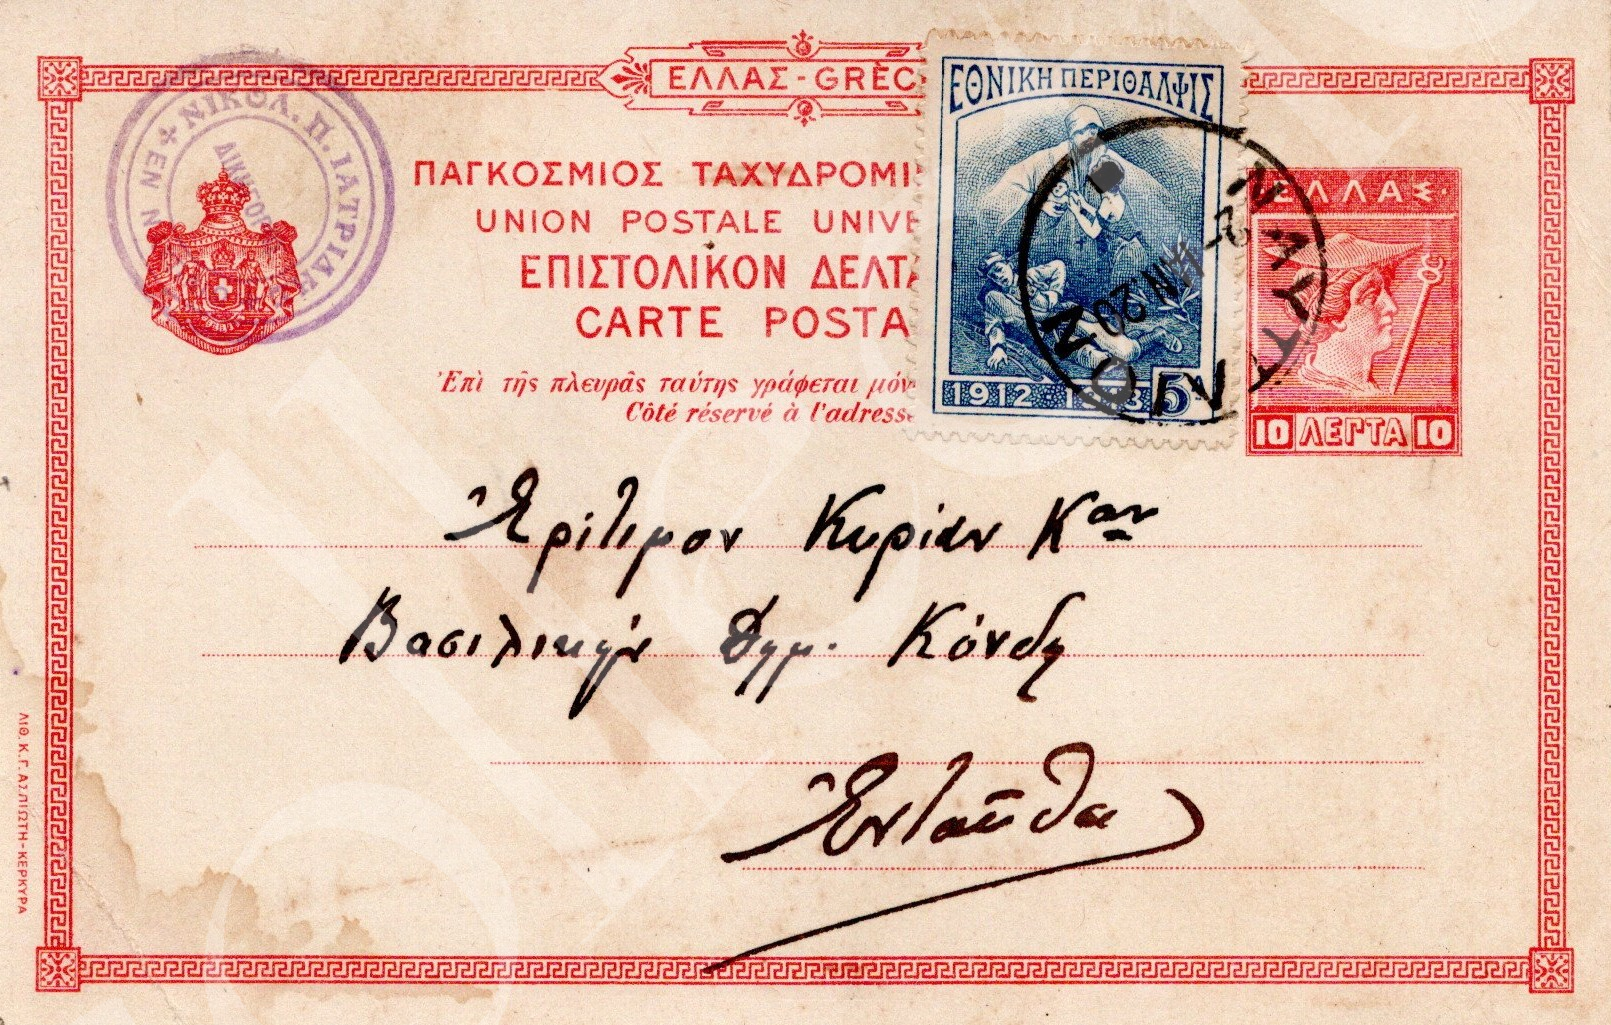 ΕΛΛΑΣ - GRÈC
ΠΑΓΚΟΣΜΙΟΣ ΤΑΧΥΔΡΟΜΙ
UNION POSTALE UNIVE
ΕΠΙΣΤΟΛΙΚΟΝ ΔΕΛΤΑ
CARTE POSTA
Ἐπὶ τῆς πλευρᾶς ταύτης γράφεται μόν
Côté réservé à l'adresse
ΝΙΚΟΛ. Π. ΙΑΤΡΙΔΗ
ΕΝ
ΔΙΚΗΓΟΡ
ΕΘΝΙΚΗ ΠΕΡΙΘΑΛΨΙΣ
1912-1913 5
ΝΑΥΠΛΙΟΝ
ΙΑΝ. 20
ΕΛΛΑΣ
10 ΛΕΠΤΑ 10
Ἐρίτιμον Κυρίαν Καν
Βασιλικὴν Δημ. Κόνδη
Ἐνταῦθα
ΛΙΘ. Κ. Γ. ΑΣΠΙΩΤΗ-ΚΕΡΚΥΡΑ